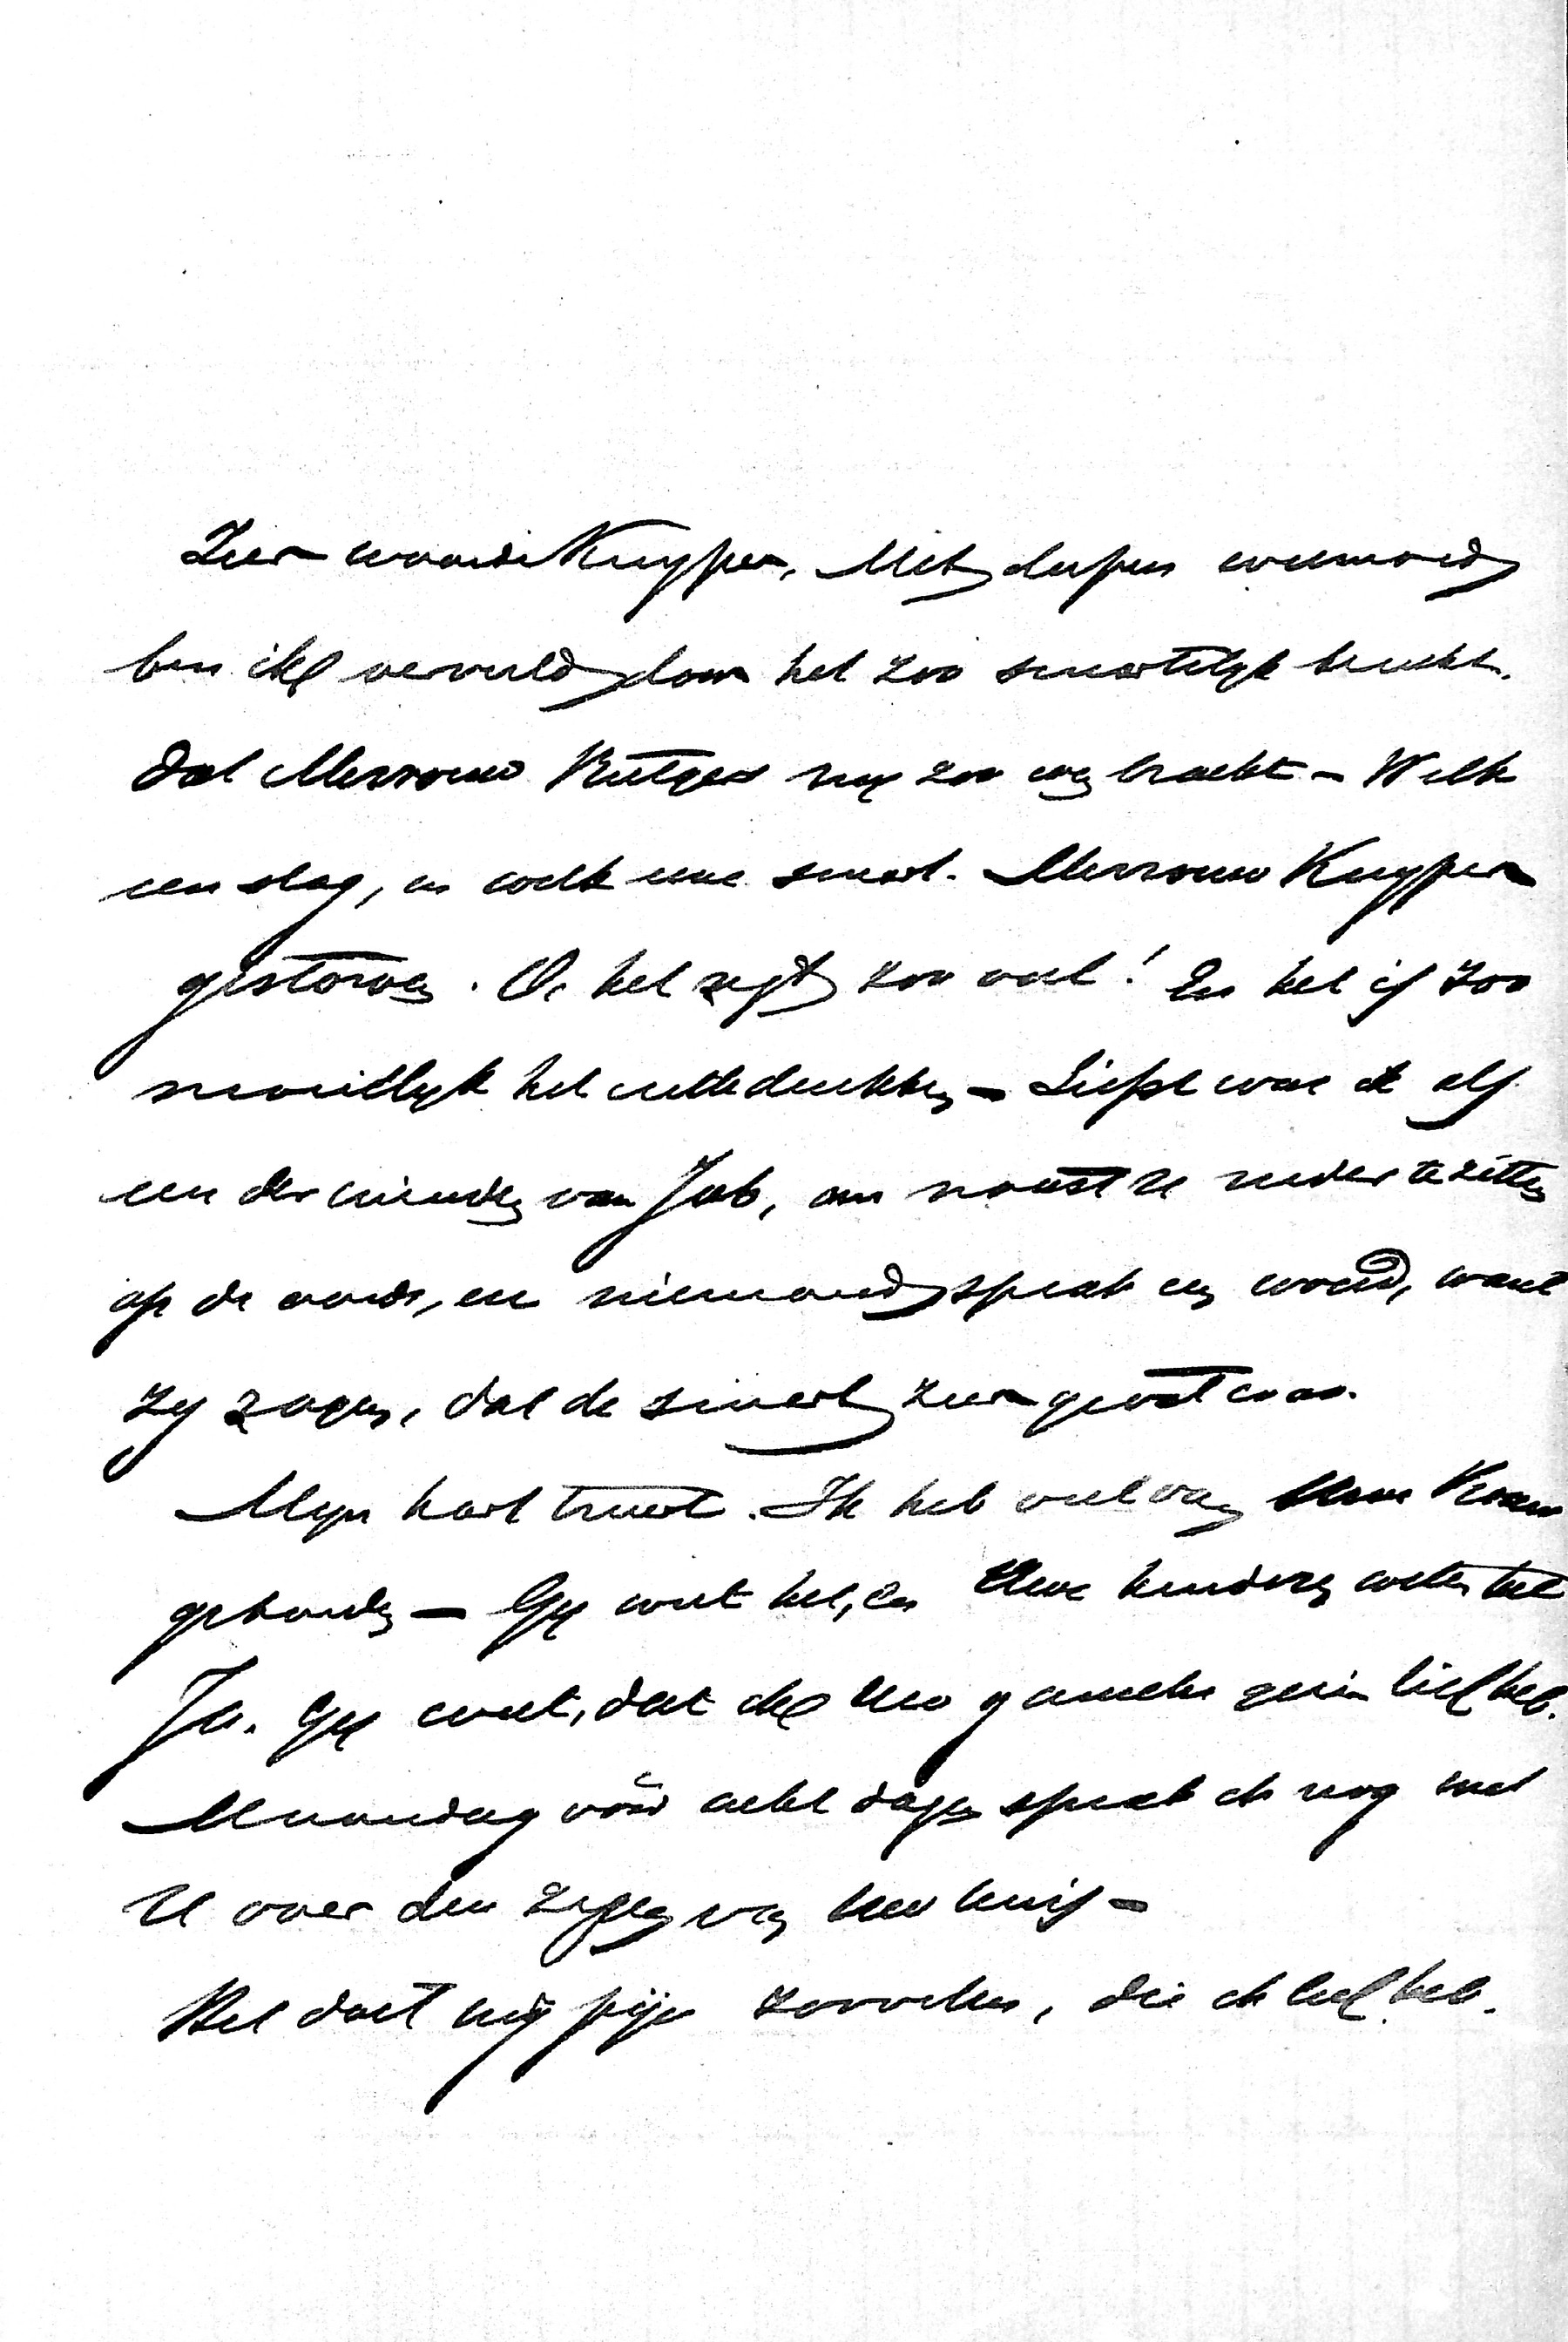 Zeer waarde Kuyper, Met diepen weemoed
ben ik vervuld door het zoo smartelijk bericht.
dat Mevrouw Rutgers mij zoo even bracht – Welk
een slag, en welk eene smart. Mevrouw Kuyper
gestorven. O, het zegt zoo veel! En het is zoo
moeilijk het uit te drukken – Liefst was ik als
een der vrienden van Job, om naast U neder te zitten
op de aarde, en niemand sprak een woord, want
zij zagen, dat de smart zeer groot was.
Mijn hart treurt. Ik heb veel van Uwe Vrouw
gehouden – Gij weet het, en Uwe kinderen weten het
Ja. Gij weet, dat ik Uw gansche gezin lief heb.
Maandag vóór acht dagen sprak ik nog met
U over den zegen van Uw huis –
Het doet mij pijn voor allen, die ik lief heb.